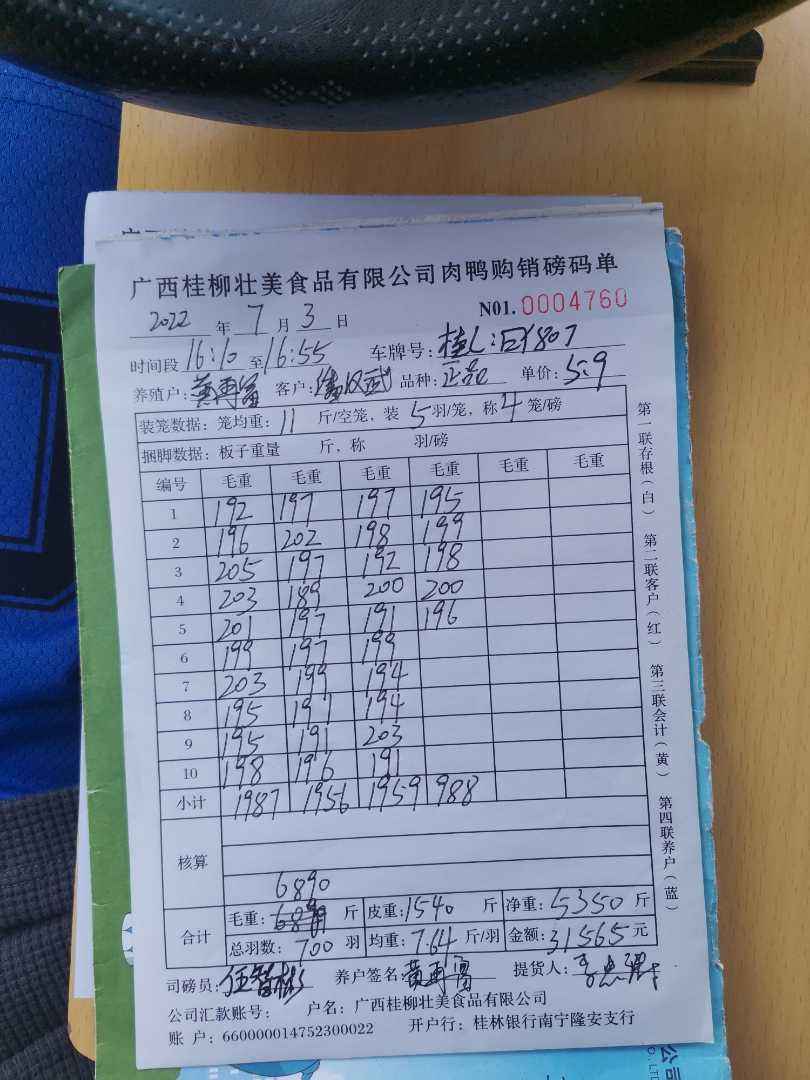 广西桂柳壮美食品有限公司肉鸭购销磅码单
2022 年 7 月 3 日 N01. 0004760
时间段 16:10 至 16:55 车牌号:
养殖户: 黄再富 客户: 品种: 正品 单价: 5.9
装笼数据: 笼均重: 11 斤/空笼, 装 5 羽/笼, 称 4 笼/磅
捆脚数据: 板子重量 斤, 称 羽/磅
编号 毛重 毛重 毛重 毛重 毛重 毛重
1 192 197 197 195
2 196 202 198 199
3 205 197 192 198
4 203 189 200 200
5 201 197 191 196
6 199 197 199
7 203 199 194
8 195 191 194
9 195 191 203
10 198 196 191
小计 1987 1956 1959 988
核算
6890
合计 毛重: 斤 皮重: 1540 斤 净重: 5350 斤
总羽数: 700 羽 均重: 7.64 斤/羽 金额: 31565 元
司磅员: 养户签名: 黄再富 提货人:
公司汇款账号: 户名: 广西桂柳壮美食品有限公司
账 户: 660000014752300022 开户行: 桂林银行南宁隆安支行
第一联存根(白) 第二联客户(红) 第三联会计(黄) 第四联养户(蓝)
公司